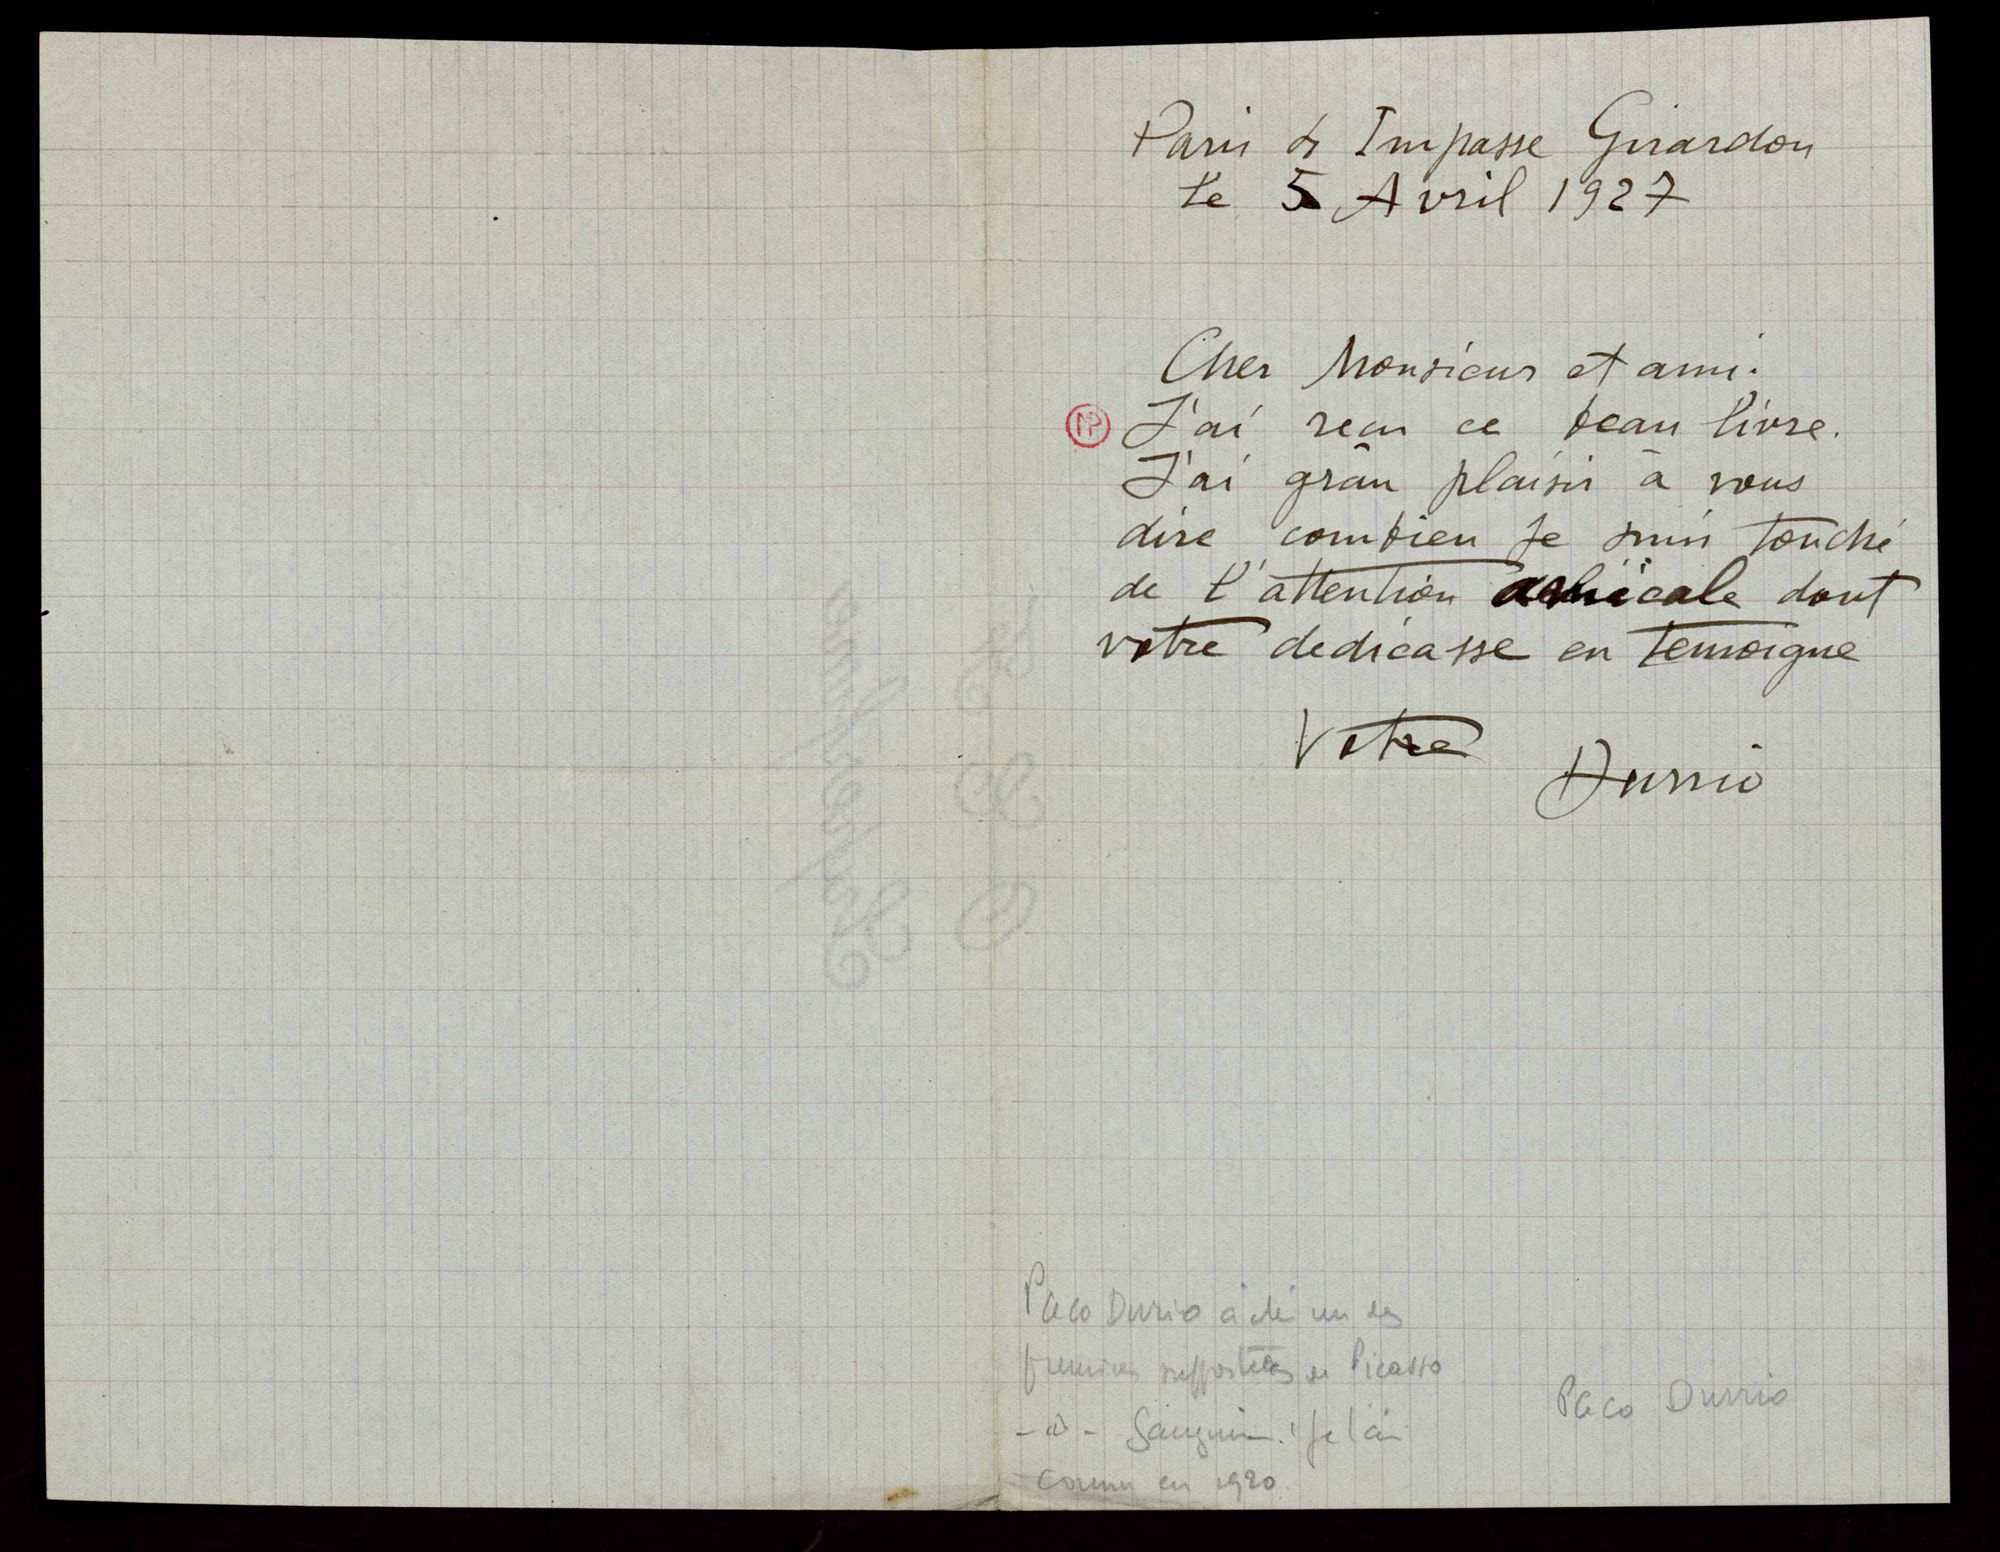 Paris Impasse Girardon
le 5 Avril 1927
Cher Monsieur et ami.
J'ai recu ce beau livre.
J'ai gran plaisir à vous
dire combien je suis touché
de l'attention amicale dont
votre dedicasse en temoigne
Votre
Durrio
Paco Durrio a été un des
premiers supporters de Picasso
Gauguin. je l'ai
connu en 1920.
Paco Durrio